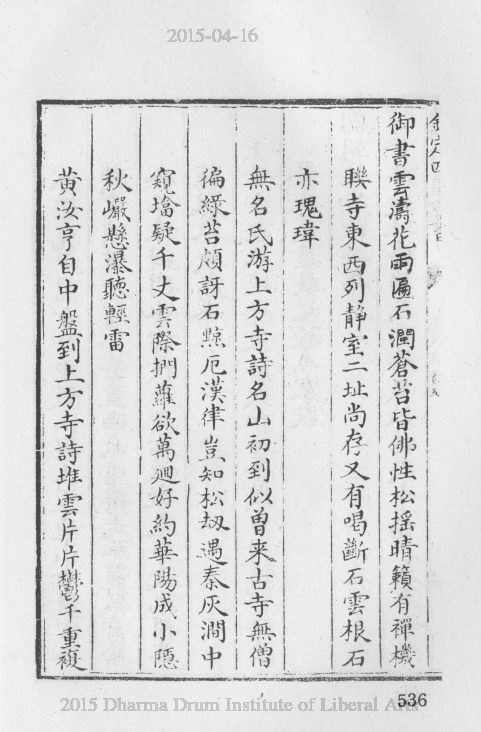 2015-04-16
御書雲濤花雨匾石潤蒼苔皆佛性松搖晴籟有禪機
聯寺東西列靜室二址尚存又有喝斷石雲根石
亦瑰瑋
無名氏游上方寺詩名山初到似曽来古寺無僧
徧綠苔頗訝石黥厄漢律豈知松刼遇秦灰澗中
窺墖疑千丈雲際捫蘿欲萬廻好約華陽成小隱
秋巖懸瀑聽輕雷
黄汝亨自中盤到上方寺詩堆雲片片鬱千重複
536
2015 Dharma Drum Institute of Liberal Arts